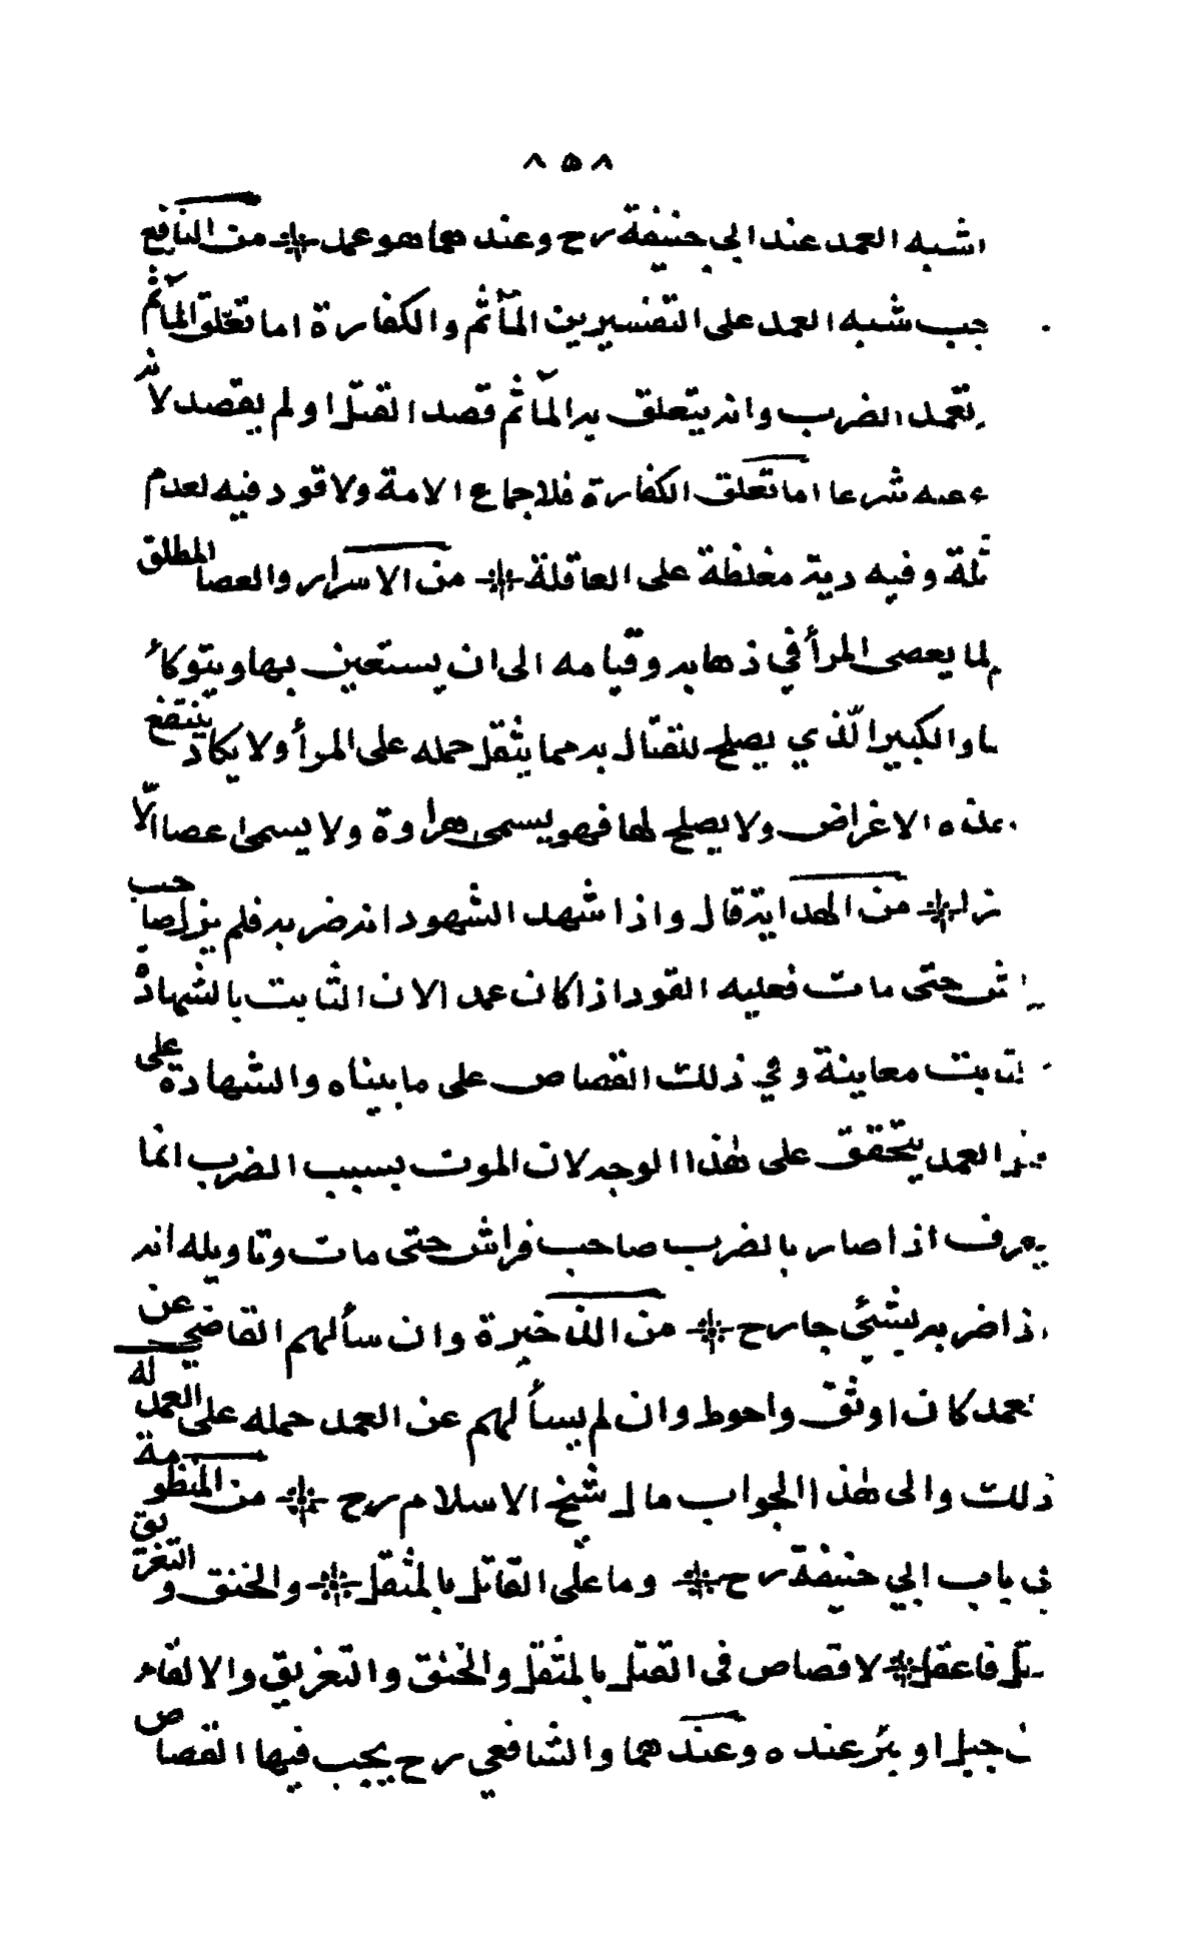 ٨٥٨
شبه العمد عند ابي حنيفة رح وعندهما هو عمد ❊ من النافع
جب شبه العمد على التفسيرين المآثم والكفارة اما تعلق المآثم
تعمد الضرب وانه يتعلق به المآثم قصد القتل او لم يقصد لانه
شرعا اما تعلق الكفارة فلاجماع الامة ولا قود فيه لعدم
ثلة وفيه دية مغلظة على العاقلة ❊ من الاسرار والعصا المطلق
لما يعصى المرأ في ذهابه وقيامه الى ان يستعين بها ويتوكأ
ما والكبير الّذي يصلح للقتال به مما يثقل حمله على المرأ ولا يكاد ينتفع
هذه الاغراض ولا يصلح لها فهو يسمى هراوة ولا يسمى عصا الّا
❊ من الهداية قال واذا شهد الشهود انه ضربه فلم يزل صاحب
اش حتى مات فعليه القود اذا كان عمد الان الثابت بالشهادة
ثابت معاينة وفي ذلك القصاص على ما بيناه والشهادة على
العمد يتحقق على هذا الوجه لان الموت بسبب الضرب انما
يعرف اذا صار بالضرب صاحب فراش حتى مات وتاويله انه
اذا ضربه بشئي جارح ❊ من الذخيرة وان سألهم القاضي عن
تعمد كان اوثق واحوط وان لم يسألهم عن العمد حمله على العمد له
ذلك والى هذا الجواب مال شيخ الاسلام رح ❊ من المنظومة
في باب ابي حنيفة رح ❊ وما على القاتل بالمثقل ❊ والخنق والتغريق
تل فاعقل ❊ لا قصاص في القتل بالمثقل والخنق والتغريق والالقاء
ن جبل او بئر عنده وعندهما والشافعي رح يجب فيها القصاص